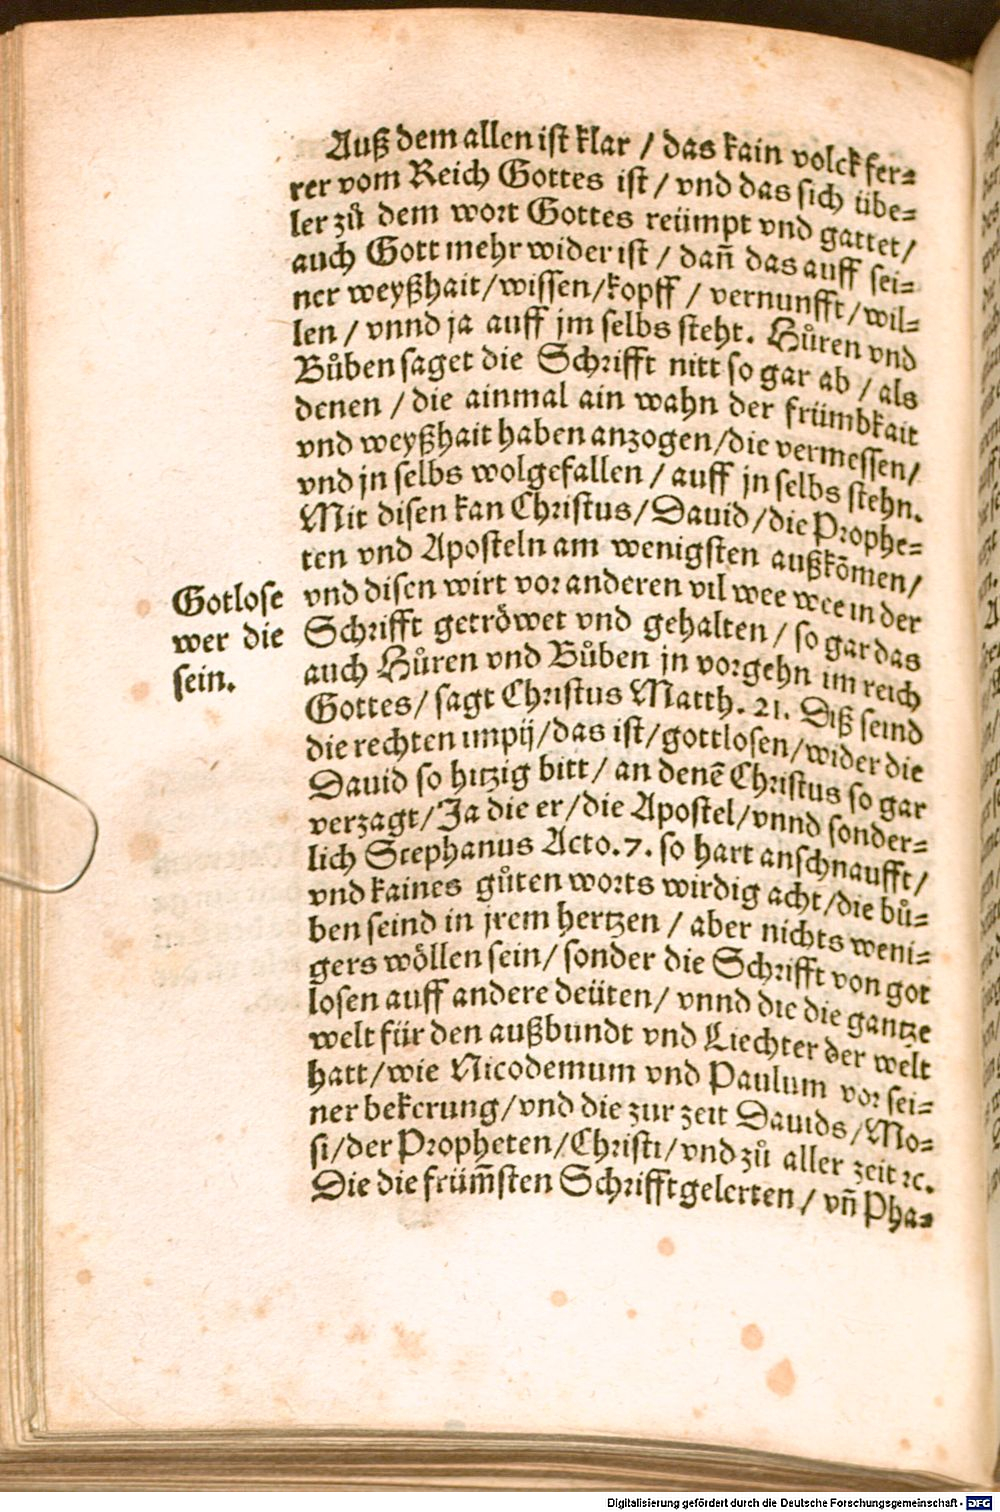 Auß dem allen ist klar / das kain volck fer=
rer vom Reich Gottes ist / vnd das sich übe=
ler zů dem wort Gottes reümpt vnd gattet /
auch Gott mehr wider ist / dañ das auff sei=
ner weyßhait / wissen / kopff / vernunfft / wil=
len / vnnd ja auff jm selbs steht. Hůren vnd
Bůben saget die Schrifft nitt so gar ab / als
denen / die ainmal ain wahn der frümbkait
vnd weyßhait haben anzogen / die vermessen /
vnd jn selbs wolgefallen / auff jn selbs stehn.
Mit disen kan Christus / Dauid / die Prophe=
ten vnd Aposteln am wenigsten außkõmen /
Gotlose wer die sein.
vnd disen wirt vor anderen vil wee wee in der
Schrifft getröwet vnd gehalten / so gar das
auch Hůren vnd Bůben jn vorgehn im reich
Gottes / sagt Christus Matth. 21. Diß seind
die rechten impij / das ist / gottlosen / wider die
Dauid so hitzig bitt / an denẽ Christus so gar
verzagt / Ja die er / die Apostel / vnnd sonder=
lich Stephanus Acto. 7. so hart anschnaufft /
vnd kaines gůten worts wirdig acht / die bů=
ben seind in jrem hertzen / aber nichts weni=
gers wöllen sein / sonder die Schrifft von got
losen auff andere deüten / vnnd die die gantze
welt für den außbundt vnd Liechter der welt
hatt / wie Nicodemum vnd Paulum vor sei=
ner bekerung / vnd die zur zeit Dauids / Mo=
si / der Propheten / Christi / vnd zů aller zeit ꝛc.
Die die früm̃sten Schrifftgelerten / vñ Pha=
Digitalisierung gefördert durch die Deutsche Forschungsgemeinschaft - DFG